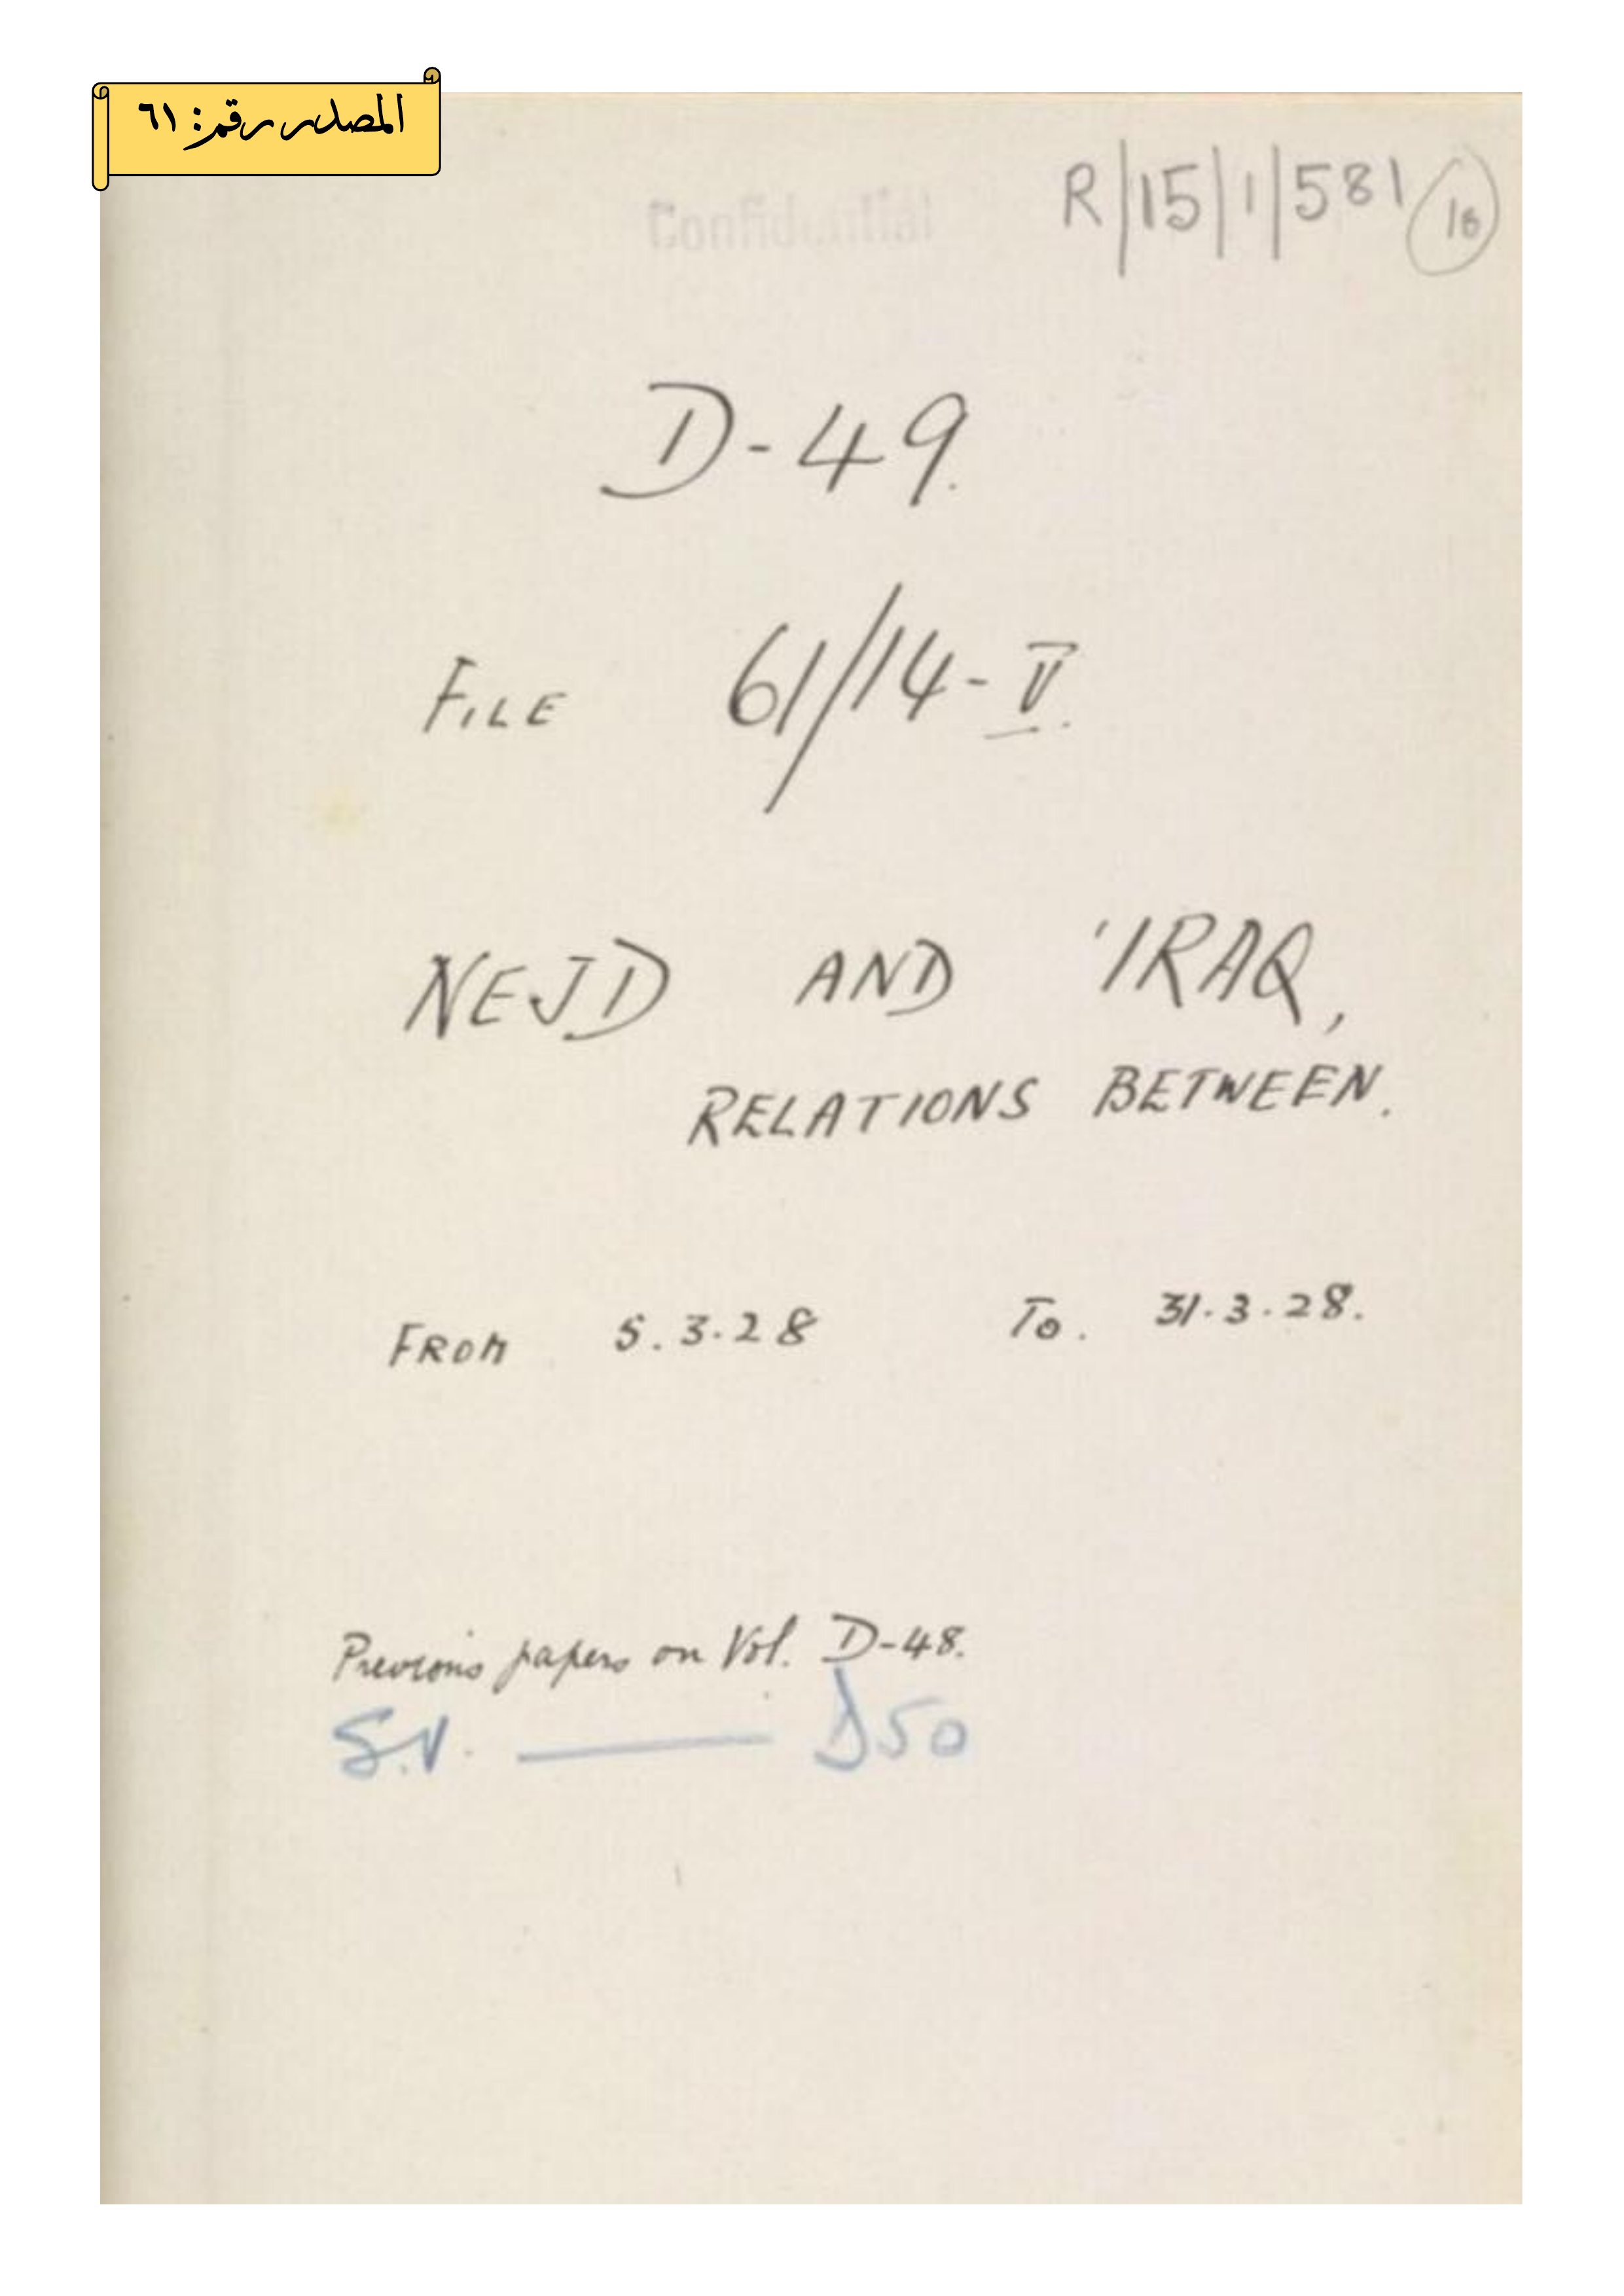 المصدر رقم: ٦١
Confidential
R/15/1/581
D-49.
FILE 61/14-V.
NEJD AND 'IRAQ,
RELATIONS BETWEEN.
FROM 5.3.28 TO. 31.3.28.
Previous papers on Vol. D-48.
S.V. — D50